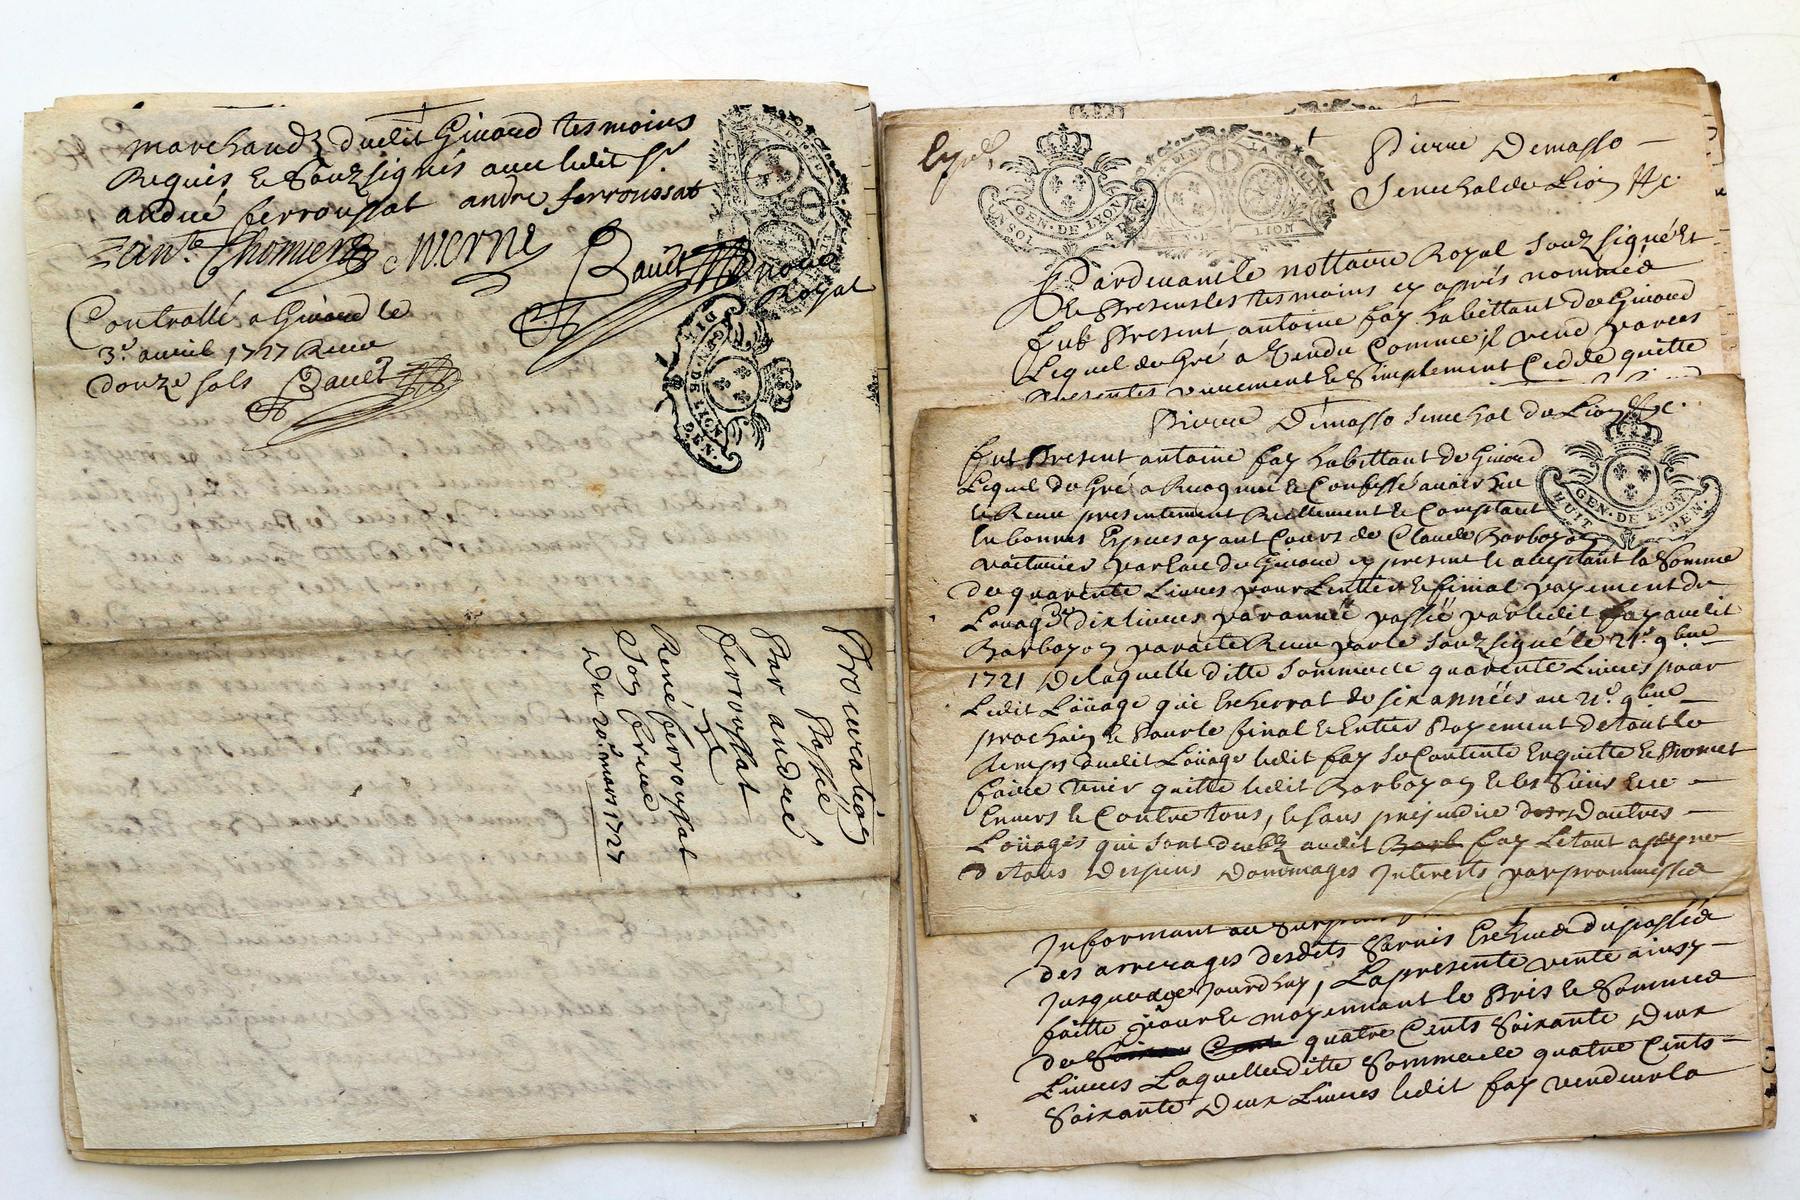 marchandz dudit Givord tesmoins
Requis & Souzsignés avec ledit Sr
andré ferroussat andre ferroussat
Werne
Bault
nore
Royal
Controllé a Givord le
3e. avril 1727 Receu
douze sols Bault
GEN. DE LION
DEN.
Procuration
Passée
Par andré
ferroussat
René ferroussat
Son frere
Du 20e. mars 1727
UN SOL
GEN. DE LYON
4 DEN.
LA VILLE
LION
Pierre Demasso
Senechal de Lion &c.
Pardevant le nottaire Royal Souzsigné Et
Presents les tesmoins cy après nommés
fut Present antoine fay habittant de Givord
Lequel de Gré a Vendu Comme il vend par ces
presentes purement & Simplement Cedde quitte
Pierre Demasso Senechal de Lion &c.
fut Present antoine fay habittant de Givord
Lequel de Gré a Recogneu & Confessé avoir heu
& Receu presentement Reellement & Comptant
En bonnes Especes ayant Cours de Claude Barboyon
voiturier par Eau de Givord cy present & aceptant la Somme
de quarente Livres pour L'entier & final payement du
Louage de dix livres par année passé par ledit fay audit
Barboyon par acte Receu par le Souzsigné le 21e. 9bre
1721 De laquelle ditte Somme de quarente Livres pour
Ledit Loüage qui Escherrat de six années au 21e. 9bre
prochain & Pour le final & Entier Payement de tout le
temps dudit Loüage ledit fay se Contente En quitte & Promet
faire tenir quitte ledit Barboyon & les Siens
Envers & Contre tous, & sans prejudice Dautres
Loüages qui sont deubz audit fay Le tout a peyne
De tous Despens Dommages Interests par promesses
HUIT
GEN. DE LYON
DEN.
des arrerages desdits Servis Escheus du passé
Jusques a ce Jourdhuy, La presente vente ainsy
faitte pour & moyennant le Prix & Somme
de quatre Cents Soixante Deux
Livres Laquelle ditte Somme de quatre Cents
Soixante Deux Livres ledit fay vendeur la